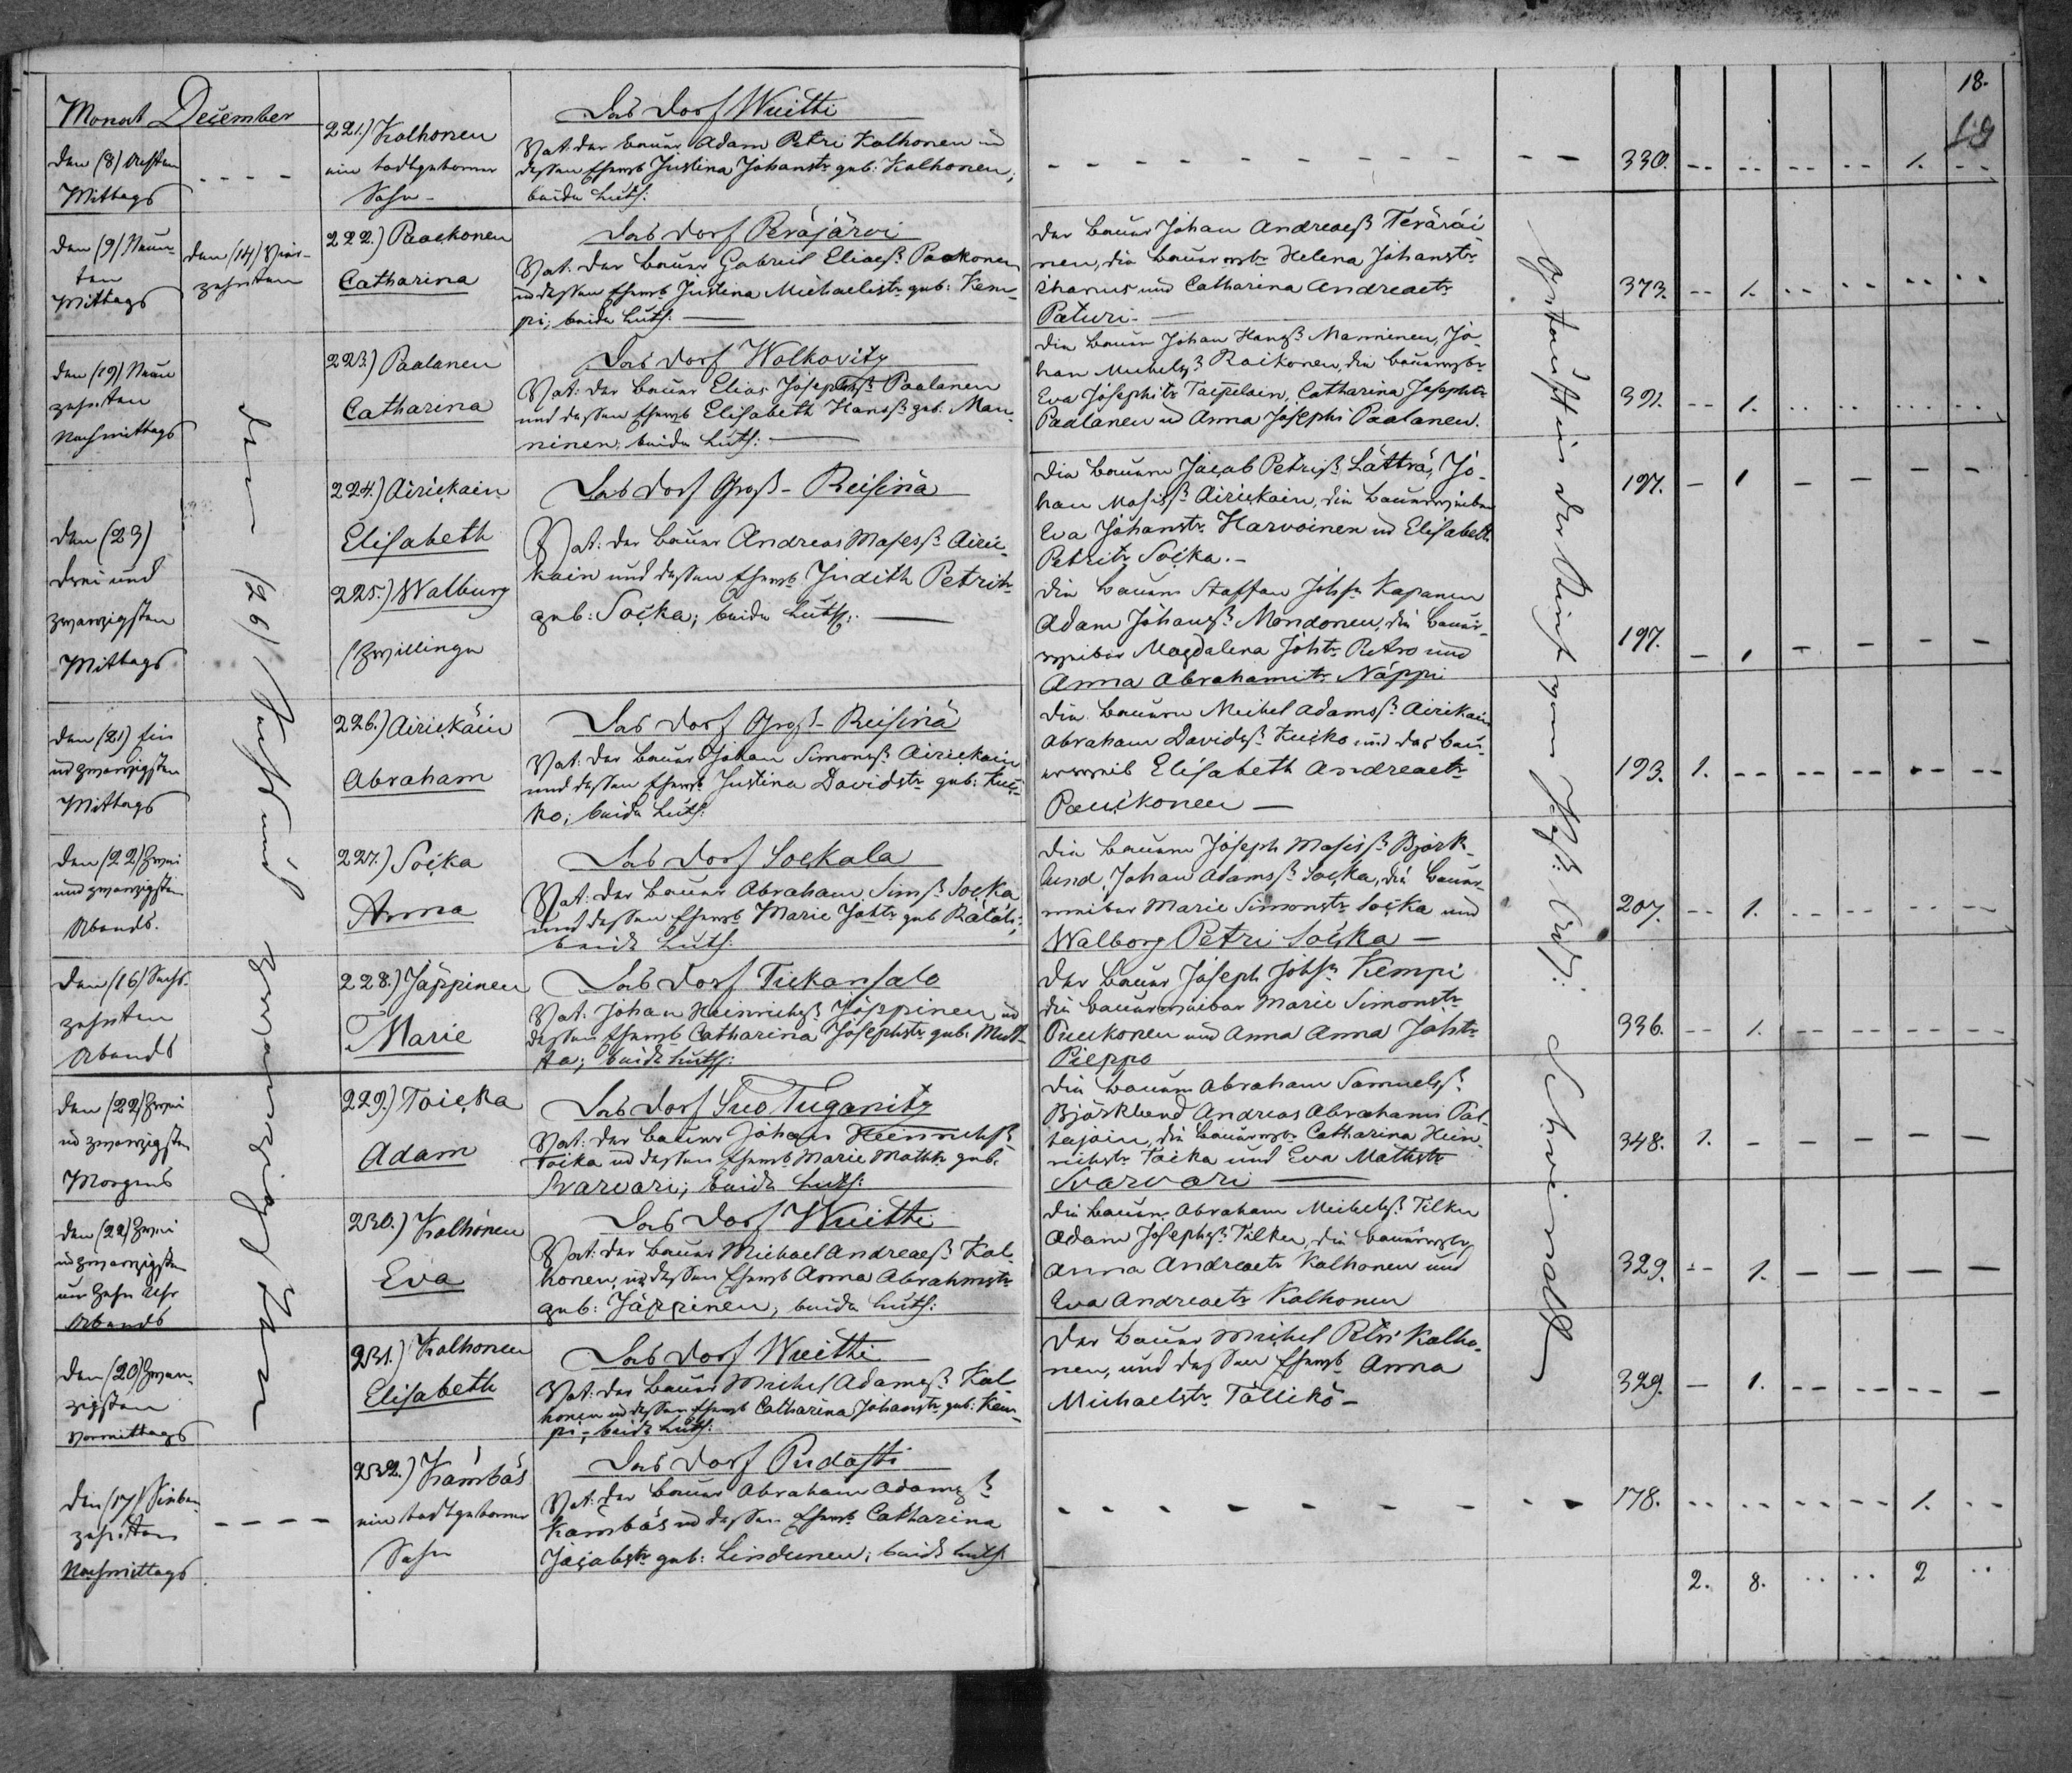 18.
Monat December
den (8) Achten
Mittags
221.) Kalhonen
ein todtgeborner
Sohn
Das Dorf Wuitti
Vat: der Bauer Adam Petri Kalhonen ud
dessen Ehewb Justina Johanstr. geb: Kalhonen;
beide Luth:
330. 1.
den (9) Neun-
ten
Mittags
den (14) Vier-
zehnten
222.) Paackonen
Catharina
Das Dorf Peräjärvi
Vat: der Bauer Gabriel Eliasß. Paakonen
ud dessen Ehewb Justina Michaelistr. geb: Kem-
pi; beide Luth.
der Bauer Johan Andreaeß Teräräi-
nen, die Bauerwbr. Helena Johanstr.
und Catharina Andreaetr.
Paturi.
373. 1.
den (19) Neun
zehnten
Nachmittags
223.) Paalanen
Catharina
Das Dorf Wolkovitz
Vat: der Bauer Elias Josephß. Paalanen
und dessen Ehewb Elisabeth Hansß. geb. Man-
ninen; beide Luth:
die Bauern Johan Hansß. Manninen, Jo-
han Michelsß. Raikonen, die Bauerwbr
Eva Josephitr. , Catharina Josephtr.
Paalanen ud Anna Josephi Paalanen.
391. 1.
den (23)
drei und
zwanzigsten
Mittags
224.) Airickain
Elisabeth
225.) Walburg
(Zwillinge
Das Dorf Groß-Reisinä
Vat: der Bauer Andreas Mosesß. Airic-
kain und dessen Ehewb. Judith Petritr.
geb: Soicka; beide Luth:
die Bauern Jacob Petrisß. Lättvä, Jo-
han Mosisß. Airickain, die Bauerweiber
Eva Johanstr. Harvoinen ud Elisabeth
Petritr. Soicka.
197. 1
die Bauern Staffan Johsn. Kapanen
Adam Johansß. Mondonen, die Bauer-
weiber Magdalena Johtr. Retro und
Anna Abrahamitr. Näppi
197. 1
den (21) Ein
ud zwanzigsten
Mittags
226.) Airickäin
Abraham
Das Dorf Groß-Reisinä
Vat: der Bauer Johan Simonsß. Airickain
und dessen Ehewb Justina Davidstr. geb: Kuic-
ko; beide Luth:
die Bauern Michel Adamsß. Airikain
Abraham Davidsß. Kuicko und das Bau-
erweib Elisabeth Andreaetr.
Pauickonen
193. 1.
den (22) Zwei
und zwanzigsten
Abends.
227.) Soicka
Anna
Das Dorf Soickala
Vat: der Bauer Abraham Simsß. Soicka
und dessen Ehewb Marie Johtr. geb Ratäli;
beide Luth:
die Bauern Joseph Mosisß. Björk-
lund, Johan Adamsß. Soicka, die Bauer-
weiber Marie Simonstr. Soicka und
Walborg Petri Soicka
207. 1.
den (16) Sechs-
zehnten
Abends
228.) Jäppinen
Marie
Das Dorf Tiekansalo
Vat: Johan Heinrichsß. Jäppinen ud
dessen Ehewb Catharina Josephstr. geb: Mul-
ta; beide Luth:
der Bauer Joseph Johsn. Kempi
die Bauerweiber Marie Simonstr.
Puukonen und Anna Anna Johtr.
Pieppo
336. 1.
den (22) Zwei
ud zwanzigsten
Morgens
229.) Toicka
Adam
Das Dorf Suo Tuganitz
Vat: der Bauer Johan Heinrichsß.
Toika ud dessen Ehewb Marie Mathtr. geb.
Svarvari; beide Luth:
die Bauern Abraham Samuelsß.
Björklund Andreas Abrahami Pal-
, die Bauerwbr. Catharina Hein-
richstr. Toicka und Eva Mathstr
Svarvari
348. 1.
den (22) Zwei
ud zwanzigsten
um Zehn Uhr
Abends
230.) Kalhonen
Eva
Das Dorf Wuitti
Vat: der Bauer Michael Andreaeß. Kal-
honen, ud dessen Ehewb Anna Abrahmstr
geb: Jäppinen; beide Luth:
die Bauern Abraham Michelsß. Tilku
Adam Josephsß. Tilku, die Bauerwbr
Anna Andreaetr. Kalhonen und
Eva Andreaetr. Kalhonen
329. 1.
den (20) Zwan-
zigsten
Vormittags
231.) Kalhonen
Elisabeth
Das Dorf Wuitti
Vat: der Bauer Michel Adamsß. Kal-
honen ud dessen Ehewb Catharina Johanstr. geb: Kem-
pi; beide Luth:
der Bauer Michel Petri Kalho-
nen, und dessen Ehewb. Anna
Michaelstr. Tällikö
329. 1.
den (17) Sieben
zehnten
Nachmittags
232.) Kämbäs
ein todtgeborner
Sohn
Das Dorf Pudosti
Vat: der Bauer Abraham Adamsß
Kämbäs ud dessen Ehewb Catharina
Jacobstr. geb: Lindunen; beide Luth
178. 1.
2. 8. 2
den (26) Sechs und zwanzigsten
der Kirche vom